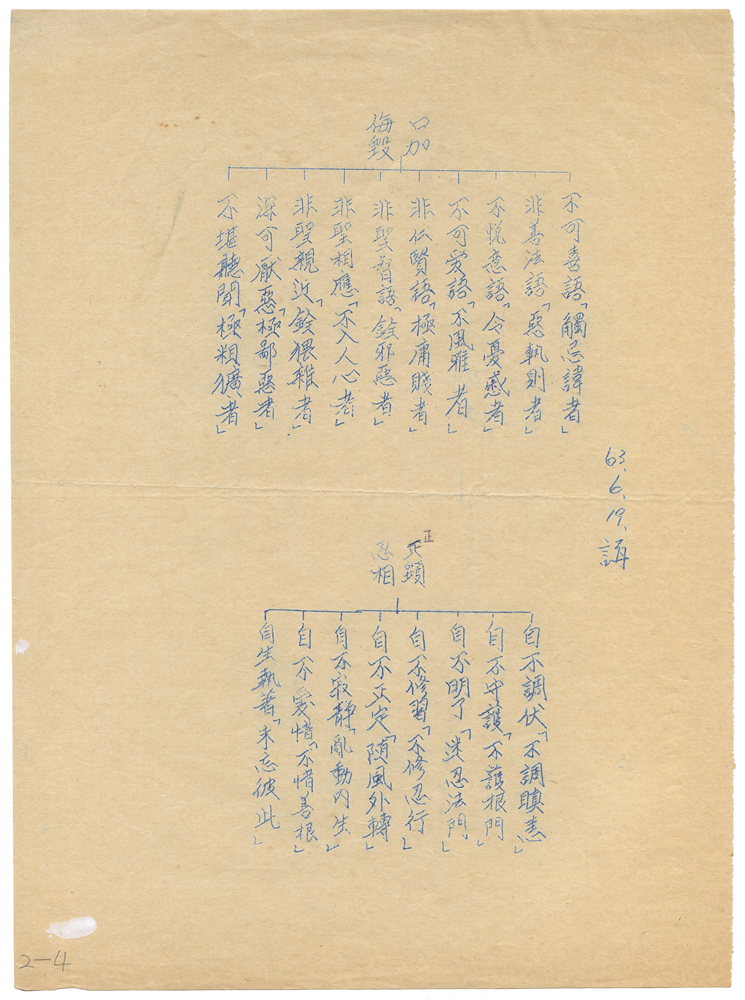 口加
侮毀
不可喜語「觸忌諱者」
非善法語「惡執則者」
不悅意語「令憂慼者」
不可愛語「不風雅者」
非仁賢語「極庸賤者」
非聖智語「銓邪惡者」
非聖相應「不入人心者」
非聖親近「銓猥雜者」
深可厭惡「極鄙惡者」
不堪聽聞「極粗獷者」
63.6.19.講
正
正顯
忍相
自不調伏「不調瞋恚」
自不守護「不護根門」
自不明了「迷忍法門」
自不修習「不修忍行」
自不正定「隨風外轉」
自不寂静「亂動內生」
自不愛惜「不惜善根」
自生執著「未忘彼此」
2-4